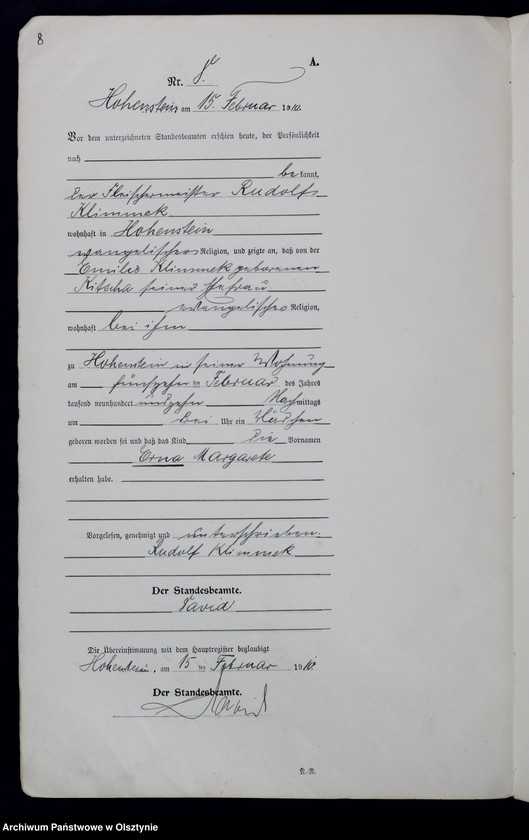 8
A.
Nr. 8.
Hohenstein am 15. Februar 1910.
Vor dem unterzeichneten Standesbeamten erschien heute, der Persönlichkeit
nach
bekannt,
der Fleischermeister Rudolf
Klimmek
wohnhaft in Hohenstein
evangelischer Religion, und zeigte an, daß von der
Emilie Klimmek geborenen
Kitscha seiner Ehefrau
evangelischer Religion,
wohnhaft bei ihm
zu Hohenstein in seiner Wohnung
am fünfzehn ten Februar des Jahres
tausend neunhundert und zehn Nachmittags
um drei Uhr ein Mädchen
geboren worden sei und daß das Kind die Vornamen
Erna Margarete
erhalten habe.
Vorgelesen, genehmigt und unterschrieben.
Rudolf Klimmek
Der Standesbeamte.
David
Die Übereinstimmung mit dem Hauptregister beglaubigt
Hohenstein, am 15 ten Februar 1910
Der Standesbeamte.
David
Archiwum Państwowe w Olsztynie